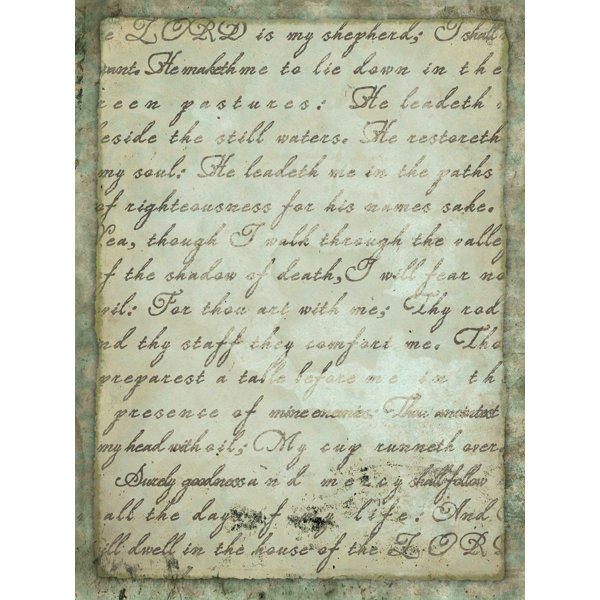 e LORD is my shepherd; I shall
want. He maketh me to lie down in the
reen pastures: He leadeth
eside the still waters. He restoreth
my soul: He leadeth me in the paths
of righteousness for his names sake.
Yea, though I walk through the valle
f the shadow of death, I will fear no
vil: For thou art with me; Thy rod
nd thy staff they comfort me. Tho
preparest a table before me in th
presence of mine enemies: Thou anointest
my head with oil; My cup runneth over.
Surely goodness and mercy shall follow
all the days of my life: And
ill dwell in the house of the LORD